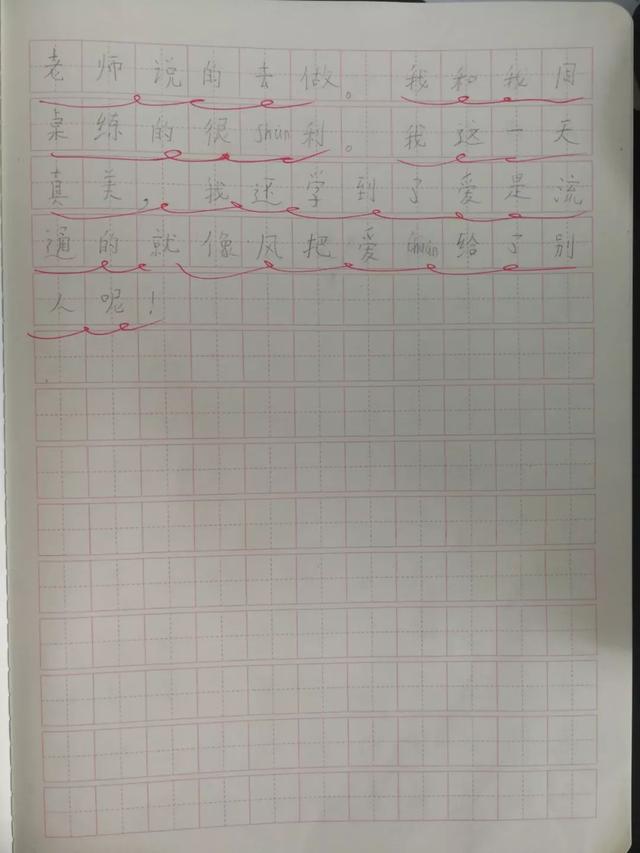 老师说的去做。我和我同
桌练的很shùn利。我这一天
真美，我还学到了爱是流
通的就像风把爱chuán给了别
人呢！